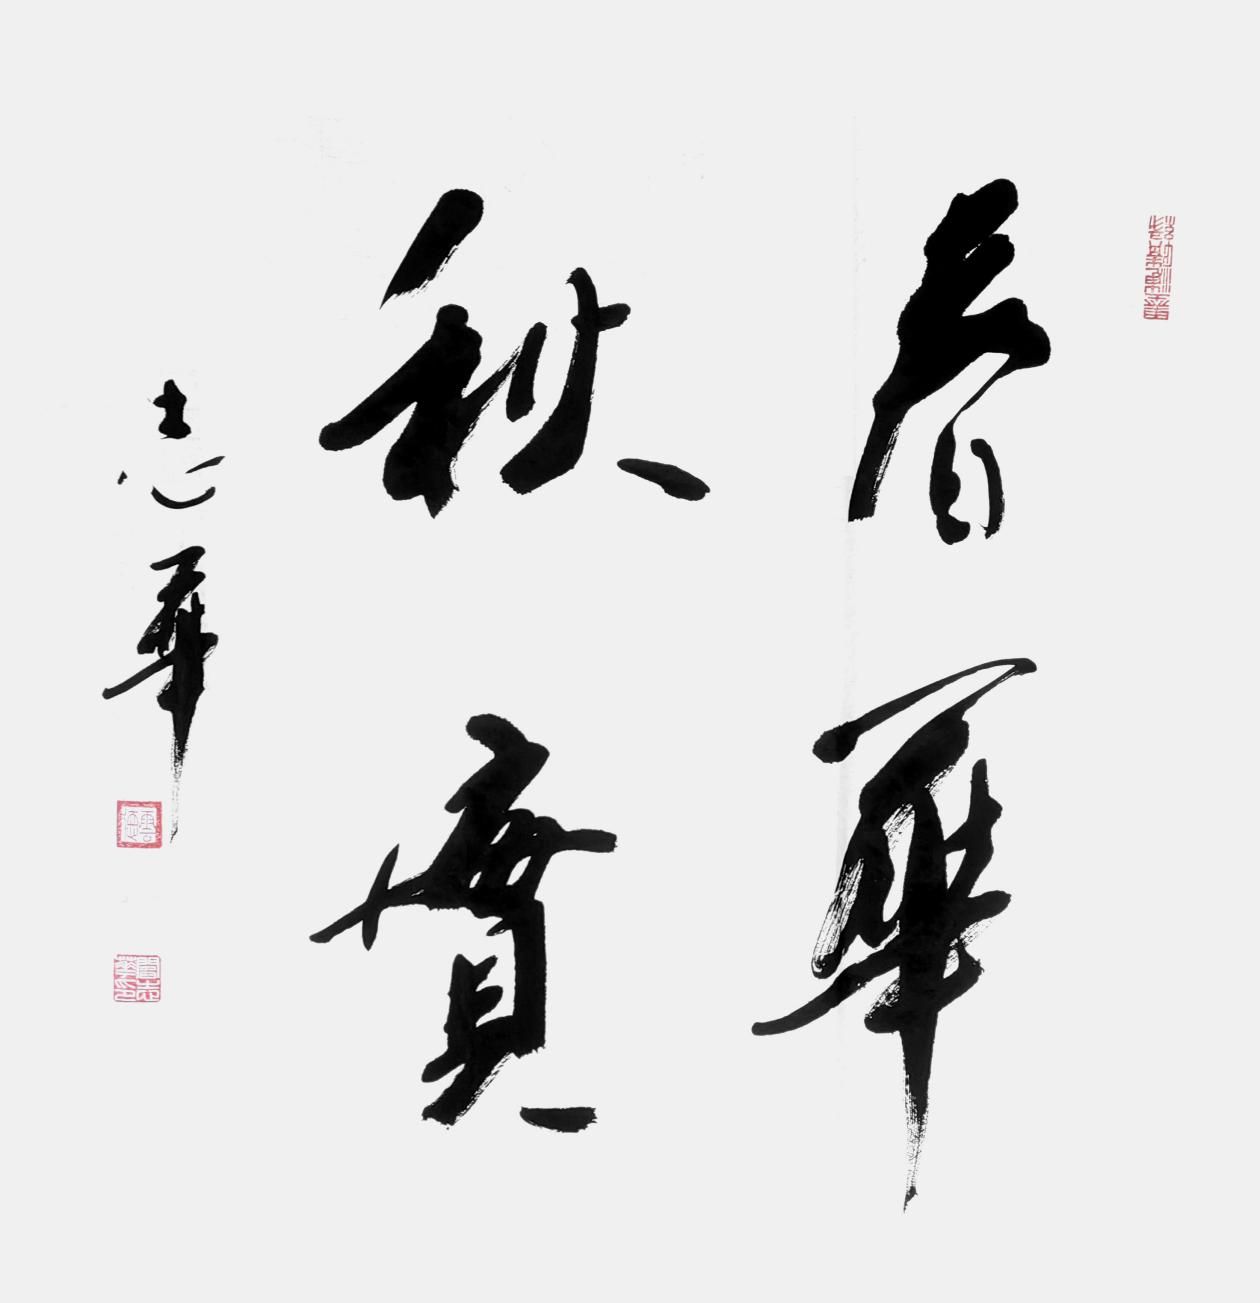 春華
秋實
志華